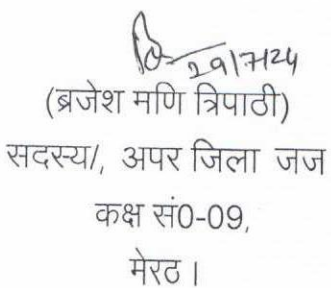 29/7/24
(ब्रजेश मणि त्रिपाठी)
सदस्य/, अपर जिला जज
कक्ष सं0-09,
मेरठ।